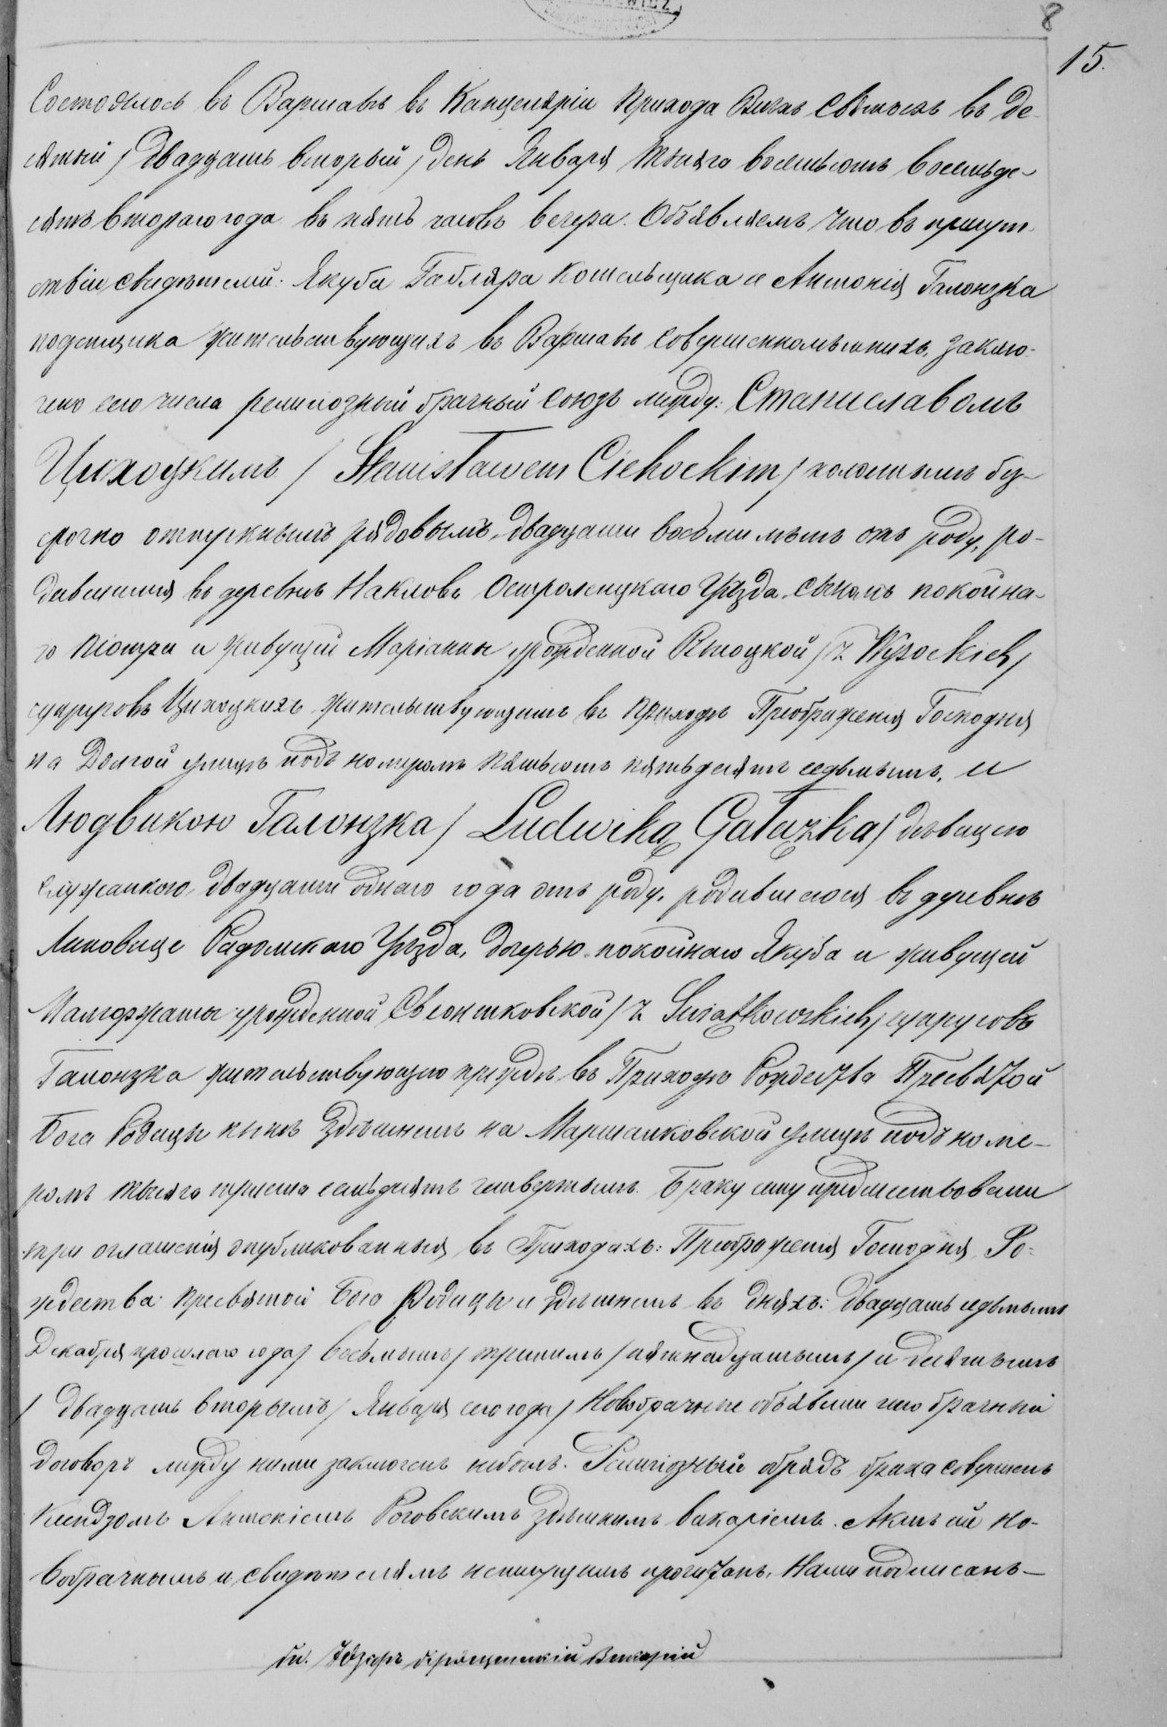 8
15.
Состоялось въ Варшавѣ въ Канцеляріи Прихода Всѣхъ Святыхъ въ де-
сятый / двадцать вторый / день Января тысяча восемьсотъ восемьде-
сятъ втораго года въ пять часовъ вечера. Объявляемъ что въ присут-
ствіи свидѣтелей: Якуба Габляра Котельщика и Антонія Галонзка
поденщика жительствующихъ въ Варшавѣ совершеннолѣтнихъ, заклю-
чено сего числа религіозный брачный союзъ между: Станиславомъ
Цихоцкимъ / Stanisławem Cichockim / холостымъ без-
срочно отпускнымъ рядовымъ, двадцати восьми лѣтъ отъ роду, ро-
дившимся въ деревнѣ Наклова Остроленцкаго Уѣзда, сыномъ покойна-
го Піотра и живущей Маріанны урожденной Высоцкой / z Wysockich /
супруговъ Цихоцкихъ жительствующимъ въ Приходѣ Преображенія Господня
на Долгой улицѣ подъ номеромъ пятьсотъ пятьдесятъ седьмымъ, и
Людвикою Галонзка / Ludwiką Gałązka / дѣвицею
служанкою, двадцати одного года отъ роду, родившеюся въ деревнѣ
Липовице Радомскаго Уѣзда, дочерью покойнаго Якуба и живущей
Малгоржаты урожденной Свіонтковской / z Świątkowskich / супруговъ
Галонзка жительствующею прежде въ Приходѣ Рождества Пресвятой
Бога Родицы нынѣ здѣшнемъ на Маршалковской улицѣ подъ номе-
ромъ тысяча триста семьдесятъ четвертымъ. Браку сему предшествовали
три оглашенія опубликованныя въ Приходахъ: Преображенія Господня, Ро-
ждества Пресвятой Бого Родицы и здѣшнемъ въ дняхъ: двадцать седьмымъ
Декабря прошлаго года / восьмымъ / третьимъ / пятнадцатымъ / и десятымъ
/ двадцать вторымъ / Января сего года / Новобрачные объявили что брачный
договоръ между ними заключенъ небылъ. Религіозный обрядъ брака совершенъ
Ксендзомъ Антоніемъ Роговскимъ здѣшнимъ викаріемъ. Актъ сей но-
вобрачнымъ и свидѣтелямъ неписущимъ прочитанъ, Нами подписанъ —
Викарій